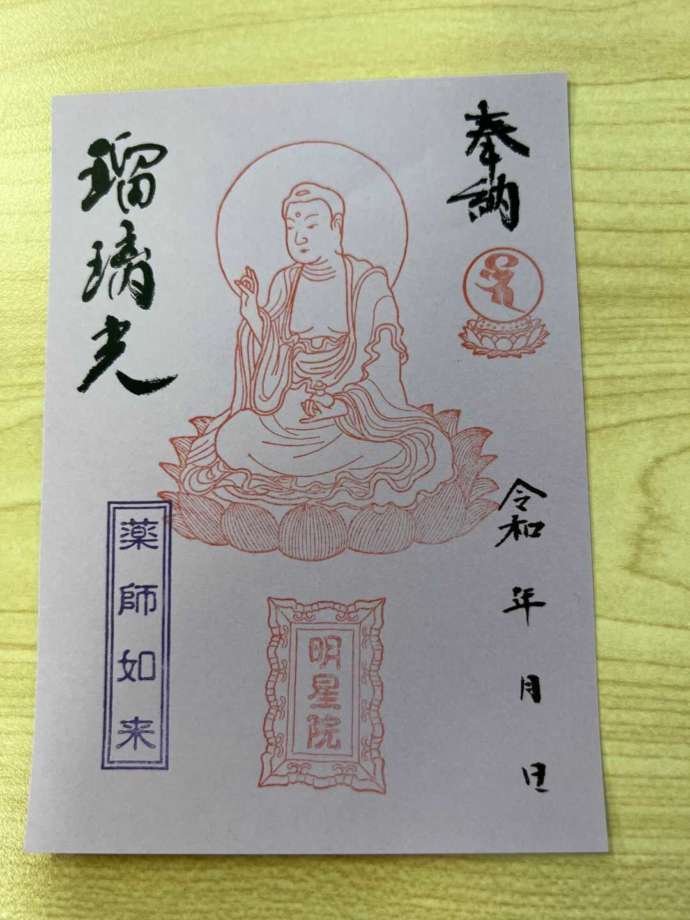 奉納
令和 年 月 日
明星院
瑠璃光
薬師如来